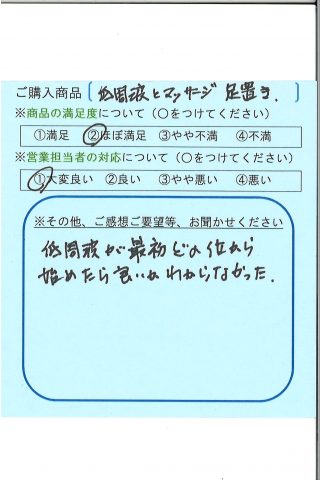 ご購入商品 [低周波とマッサージ 足置き.]
※商品の満足度について(○をつけてください)
①満足 ②ほぼ満足 ③やや不満 ④不満
※営業担当者の対応について(○をつけてください)
①大変良い ②良い ③やや悪い ④悪い
※その他、ご感想ご要望等、お聞かせください
低周波が最初どの位から
始めたら良いかわからなかった.